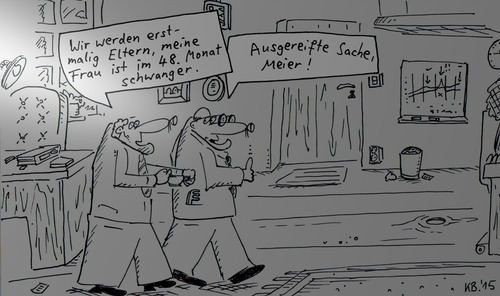 Wir werden erst-
malig Eltern, meine
Frau ist im 48. Monat
schwanger.
Ausgereifte Sache,
Meier!
KB.'15